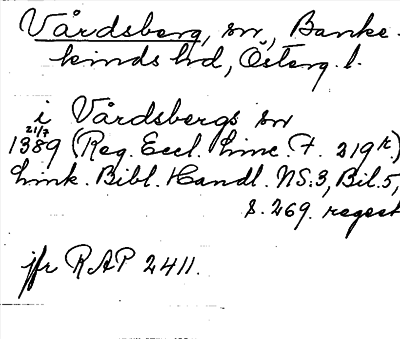 Vårdsberg, sn, Banke-
kinds hd, Österg. l.
i Vårdsbergs sn
21/7
1389 (Reg. Eccl. Linc. F. 219r.)
Link. Bibl. Handl. NS:3, Bil.5,
s. 269. regest
jfr RAP 2411.